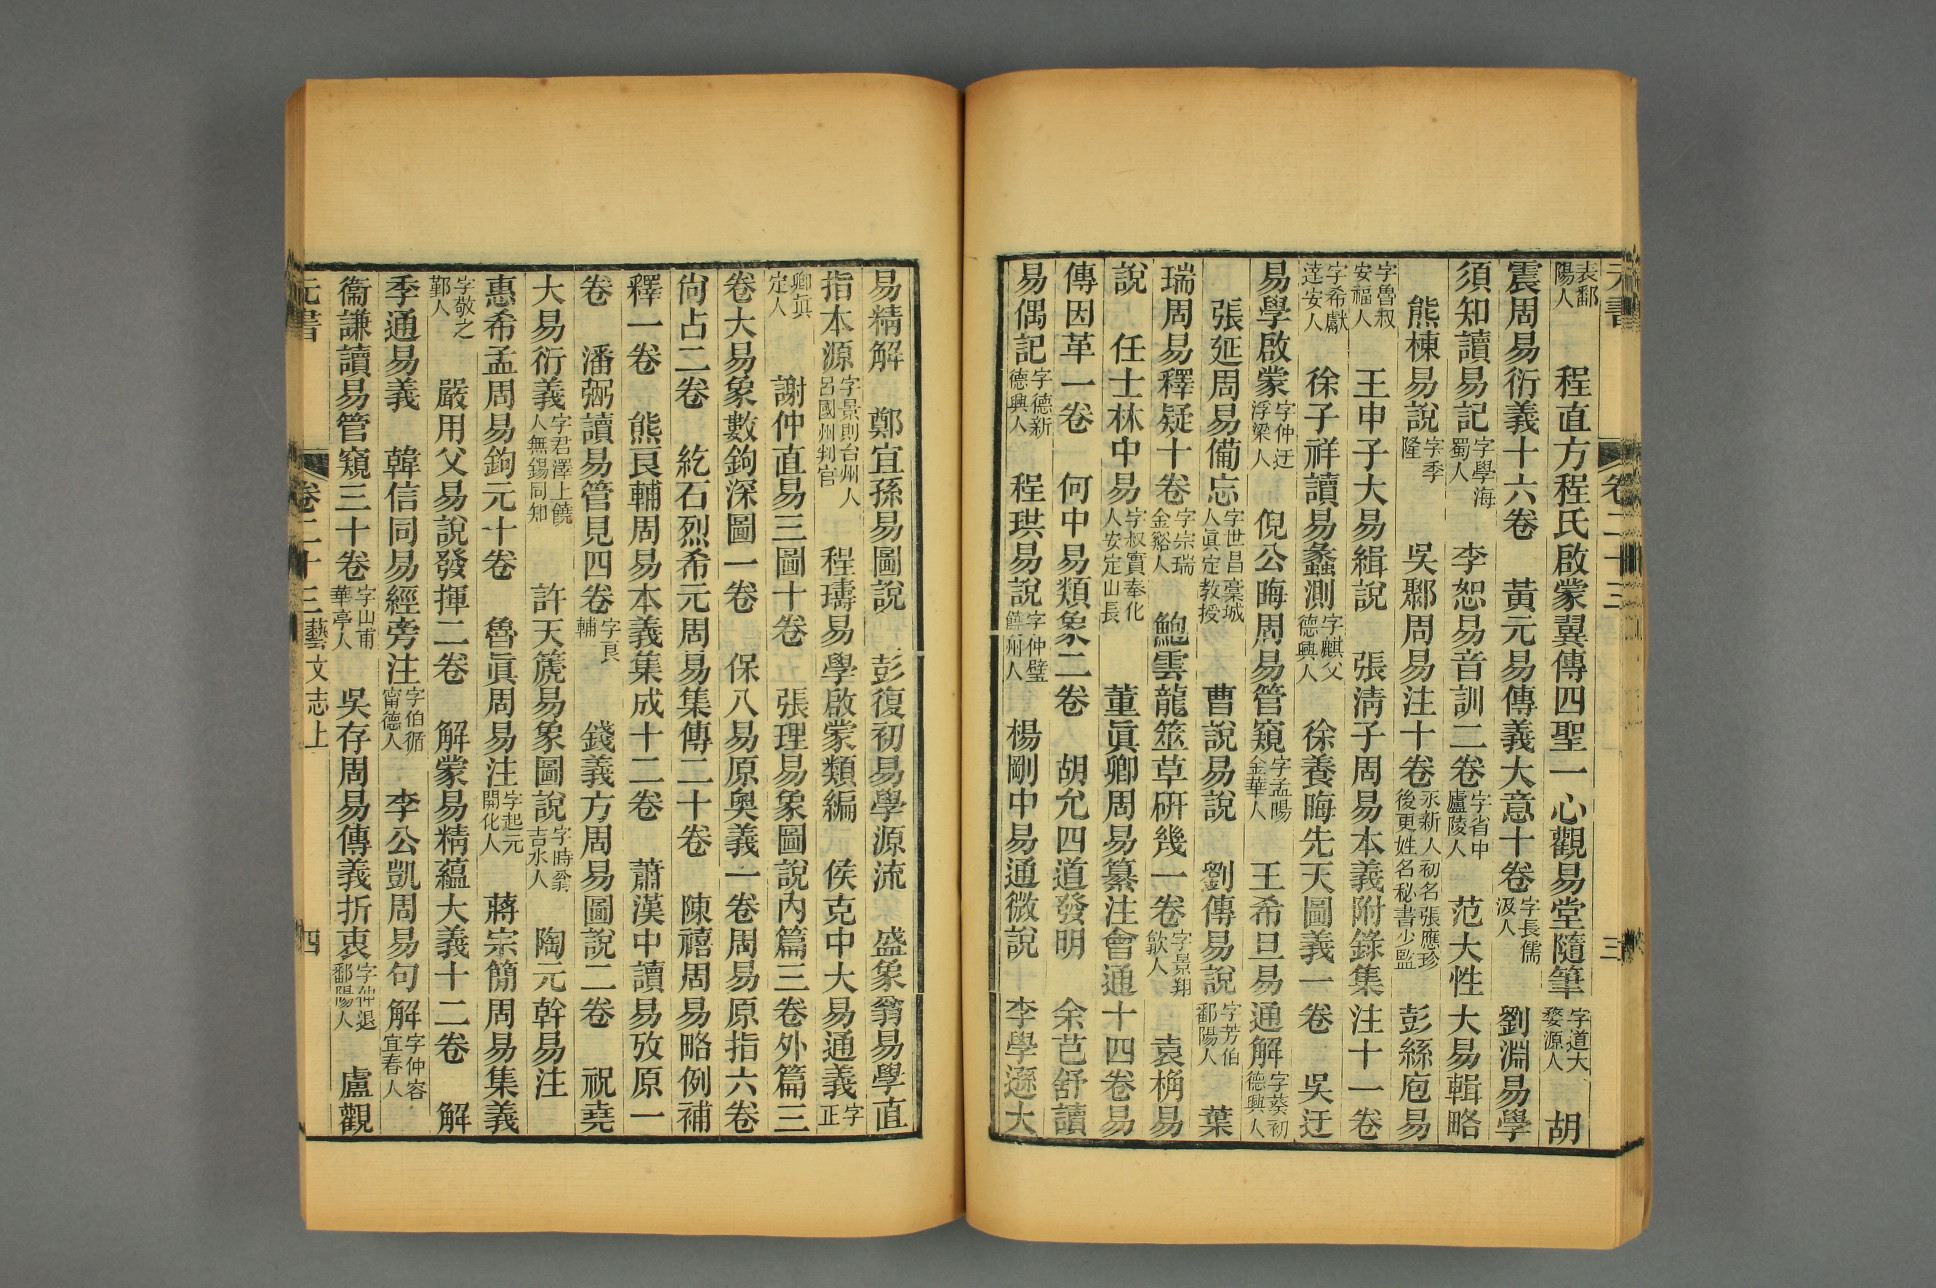 元書 卷二十三 三
袁鄱陽人 程直方程氏啟蒙翼傳四聖一心觀易堂隨筆字道大婺源人 胡
震周易衍義十六卷 黃元易傳義大意十卷字長儒汲人 劉淵易學
須知讀易記字學海蜀人 李恕易音訓二卷字省中廬陵人 范大性大易輯略
熊棟易說字季隆 吳鄹周易注十卷永新人初名張應珍後更姓名秘書少監 彭絲庖易
字魯叔安福人 王申子大易緝說 張清子周易本義附錄集注十一卷
字希獻達安人 徐子祥讀易蠡測字麒父德興人 徐養晦先天圖義一卷 吳迂
易學啟蒙字仲迂浮梁人 倪公晦周易管窺字孟暘金華人 王希旦易通解字葵初德興人
張延周易備忘字世昌藁城人真定教授 曹說易說 劉傳易說字芳伯鄱陽人 葉
瑞周易釋疑十卷字宗瑞金谿人 鮑雲龍筮草研幾一卷字景翔歙人 袁桷易
說 任士林中易字叔實奉化人安定山長 董眞卿周易纂注會通十四卷易
傳因革一卷 何中易類象二卷 胡允四道發明 余芑舒讀
易偶記字德新德興人 程珙易說字仲璧饒州人 楊剛中易通微說 李學遜大
易精解 鄭宜孫易圖說 彭復初易學源流 盛象翁易學直
指本源字景則台州人呂國州判官 程璹易學啟蒙類編 侯克中大易通義字正
卿真定人 謝仲直易三圖十卷 張理易象圖說內篇三卷外篇三
卷大易象數鉤深圖一卷 保八易原奧義一卷周易原指六卷
尙占二卷 紇石烈希元周易集傳二十卷 陳禧周易略例補
釋一卷 熊良輔周易本義集成十二卷 蕭漢中讀易攷原一
卷 潘弼讀易管見四卷字良輔 錢義方周易圖說二卷 祝堯
大易衍義字君澤上饒人無錫同知 許天篪易象圖說字時翁吉水人 陶元幹易注
惠希孟周易鉤元十卷 魯眞周易注字起元開化人 蔣宗簡周易集義
字敬之鄞人 嚴用父易說發揮二卷 解蒙易精蘊大義十二卷 解
季通易義 韓信同易經旁注字伯循甯德人 李公凱周易句解字仲容宜春人
衞謙讀易管窺三十卷字山甫華亭人 吳存周易傳義折衷字仲退鄱陽人 盧觀
元書 卷二十三 藝文志上 四